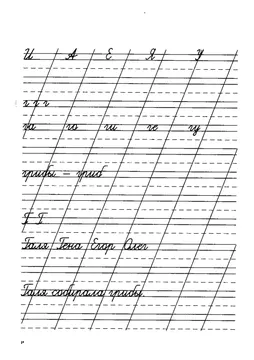 И А Е Я У
г г г
га го ги ге гу
грибы – гриб
Г Г
Галя Гена Егор Олег
Галя собирала грибы.